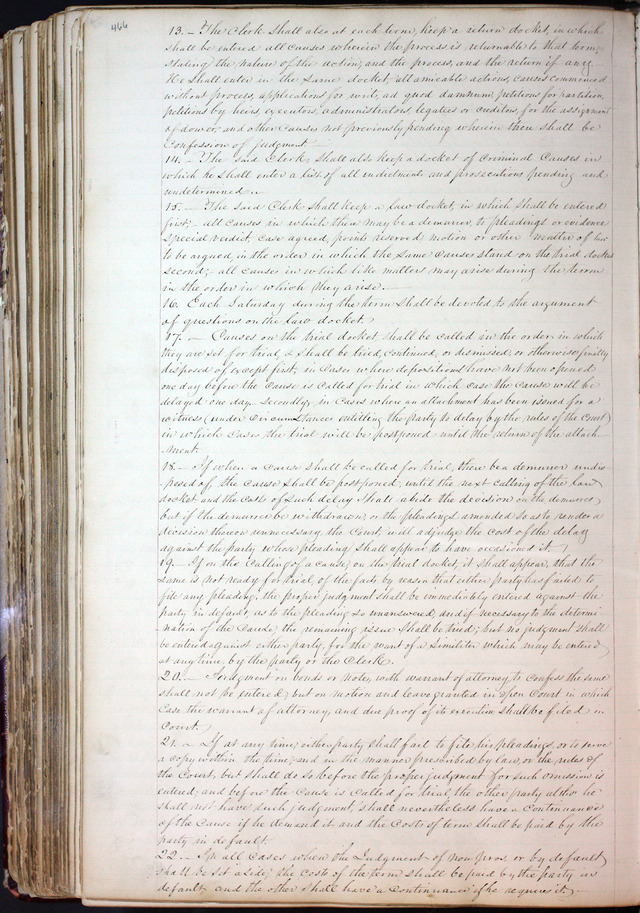 466
13. – The Clerk shall also at each term, keep a return docket, in which
shall be entered all causes wherein the process is returnable to that term,
stating the nature of the action, and the process, and the return if any.
He shall enter in the same docket, all amicable actions, causes commenced
without process, applications for writ, ad quod damnum, petitions for partition,
petitions by heirs, executors, administrators, legatees or creditors, for the assignment
of dower, and other causes not previously pending wherein there shall be
Confession of judgment
14. – The said Clerk, shall also keep a docket of Criminal Causes in
which he shall enter a list of all indictments and prosecutions pending and
undetermined –
15. – The said Clerk shall keep a law docket, in which shall be entered
first; – all causes in which there may be a demurrer, to pleadings or evidence
special verdict, case agreed, points reserved motion or other matter of law
to be argued, in the order in which the same causes stand on the trial docket
second; – all causes in which like matters may arise during the term
in the order in which they arise. –
16. Each Saturday during the term shall be devoted to the argument
of questions on the law docket.
17. – Causes on the trial docket shall be called in the order in which
they are set for trial, & shall be tried, continued, or dismissed, or otherwise finally
disposed of except first; in cases where depositions have not been opened
one day before the cause is called for trial in which case the cause will be
delayed one day. Secondly, in cases where an attachment has been issued for a
witness (under circumstances entitling the party to delay by the rules of the Court)
in which cases the trial will be postponed until the return of the attach-
ment.
18. – If when a cause shall be called for trial, there be a demurrer undis-
posed of the cause shall be postponed, until the next calling of the law
docket and the costs of such delay shall abide the decision on the demurrer,
but if the demurrer be withdrawn, or the pleadings amended so as to render a
decision thereon unnecessary, the Court, will adjudge the cost of the delay
against the party whose pleading shall appear to have occasioned it.
19. – If on the calling of a cause, on the trial docket, it shall appear, that the
same is not ready for trial, of the facts by reason that either party has failed to
file any pleading, the proper judgment shall be immediately entered against the
party in default, as to the pleading so unanswered, and if necessary to the determi-
nation of the Cause, the remaining issue shall be tried; but no judgment shall
be entered against either party, for the want of a Similiter which may be entered
at any time, by the party or the Clerk.
20. – Judgment on bonds or notes, with warrant of attorney to confess the same
shall not be entered, but on motion and leave granted in open Court in which
case the warrant of attorney, and due proof of its execution shall be filed in
Court.
21. – If at any time, either party shall fail to file his pleadings, or to serve
a copy within the time, and in the manner prescribed by law, or the rules of
the Court, but shall do so before the proper judgment for such omission is
entered; and before the cause is called for trial, the other party altho he
shall not have such judgment, shall nevertheless have a Continuance
of the Cause if he demand it and the costs of term shall be paid by the
party in default.
22. – In all cases when the Judgment of non pros. or by default
shall be set aside; the costs of the term shall be paid by the party in
default, and the other shall have a continuance if he requires it. –